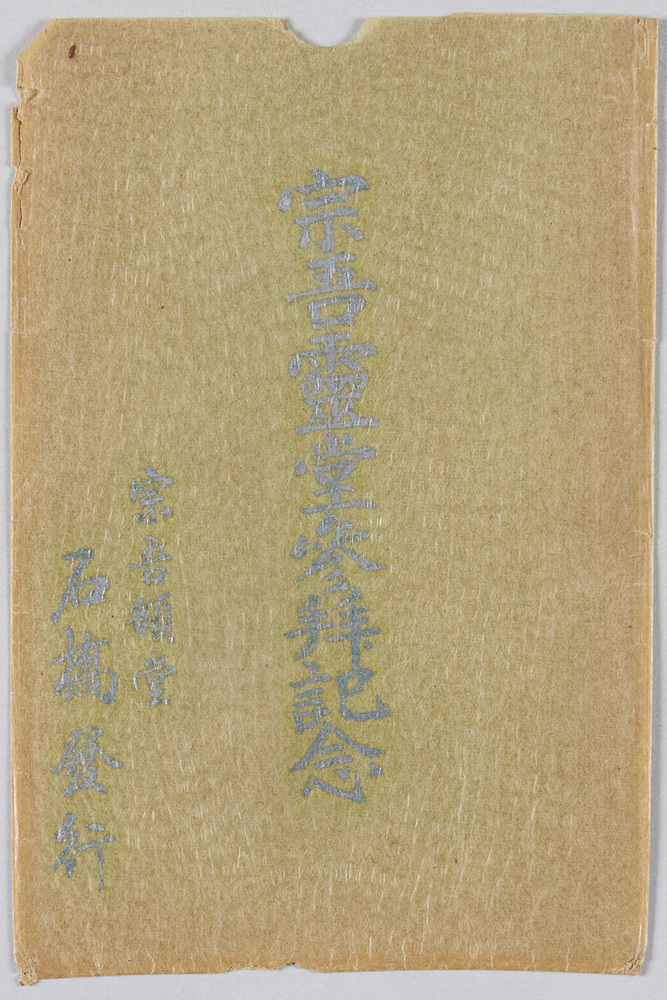 宗吾靈堂參拜記念
宗吾頭堂
石橋發行